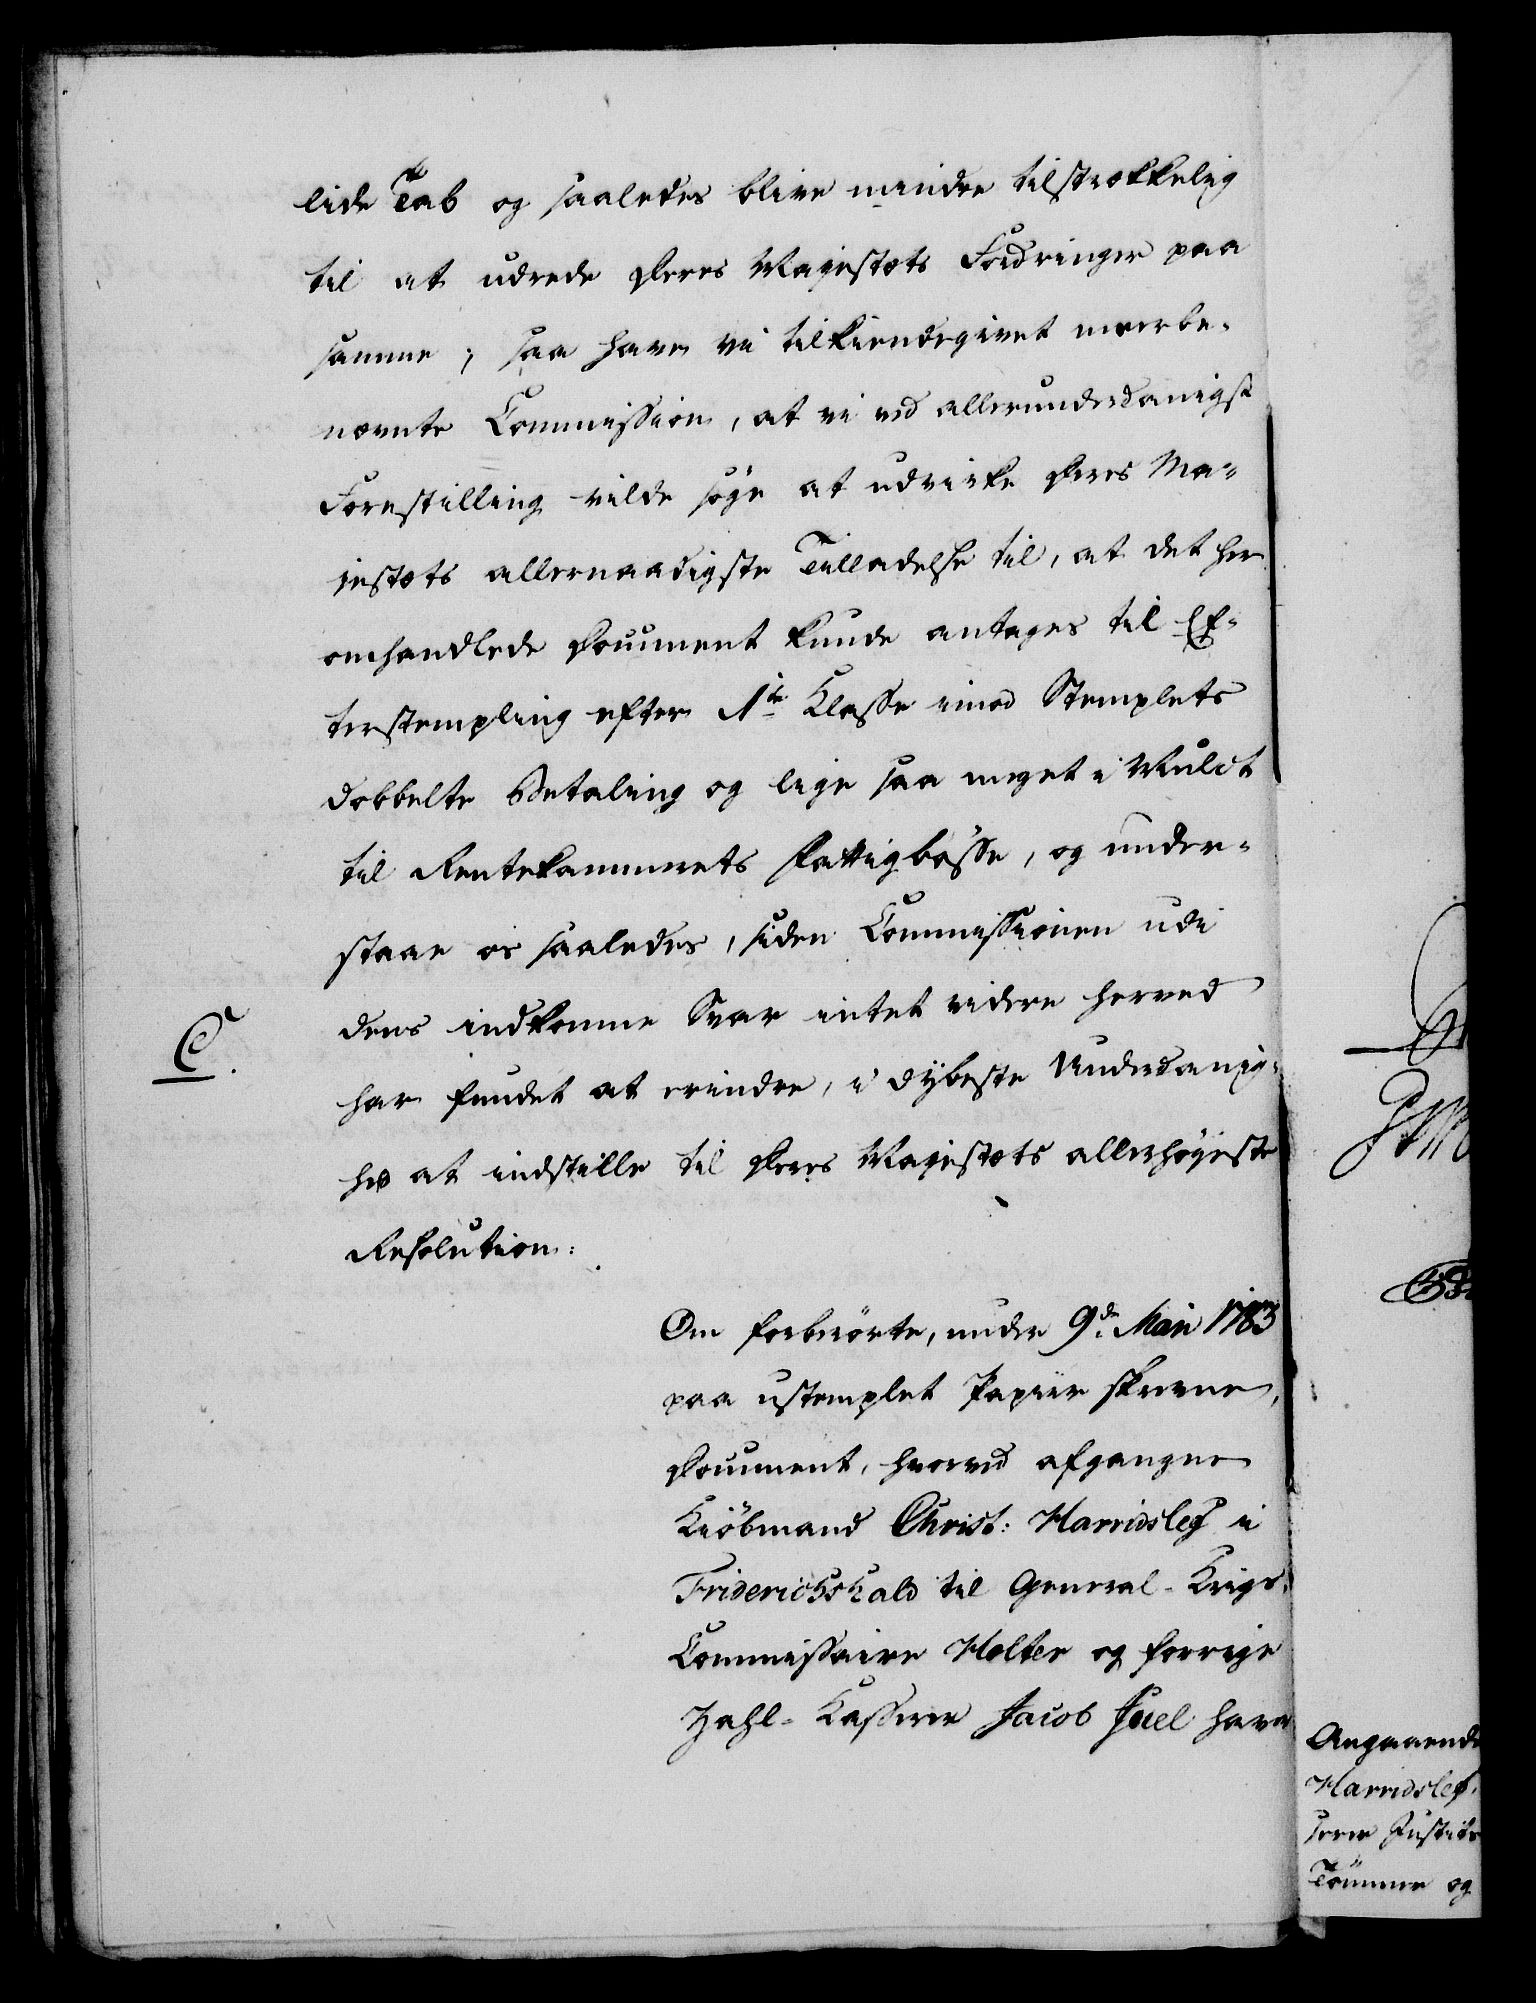 lide Tab og saaledes blive mindre tilstrækkelig
til at udrede Deres Majestæts Fordringer paa
samme; saa have vi tilkiendegivet meerbe-
nævnte Commission, at vi ved allerunderdanigst
Forestilling vilde søge at udvirke Deres Ma-
jestæts allernaadigste Tilladelse til, at det her
omhandlede Document kunde antages til Ef-
terstempling efter 1te Klasse imod Stemplets
dobbelte Betaling og lige saa meget i Mulct
til Rentekammerets Fattigbøsse, og under-
staae os saaledes, siden Commissionen udi
C.
dens indkomne Svar intet videre herved
har fundet at erindre, i dybeste Underdanig-
hed at indstille til Deres Majestæts allerhøyeste
Resolution:
Om forberørte, under 9de Maii 1783
paa ustemplet Papiir skrevne,
Document, hvorved afgangne
Kiöbmand Christ: Harridslef i
Friderichshald til General-Krigs-
Commissaire Holter og forrige
Zahl-Kasserer Jacob Juel have
Angaaende
Harridslef,
Tömmer og